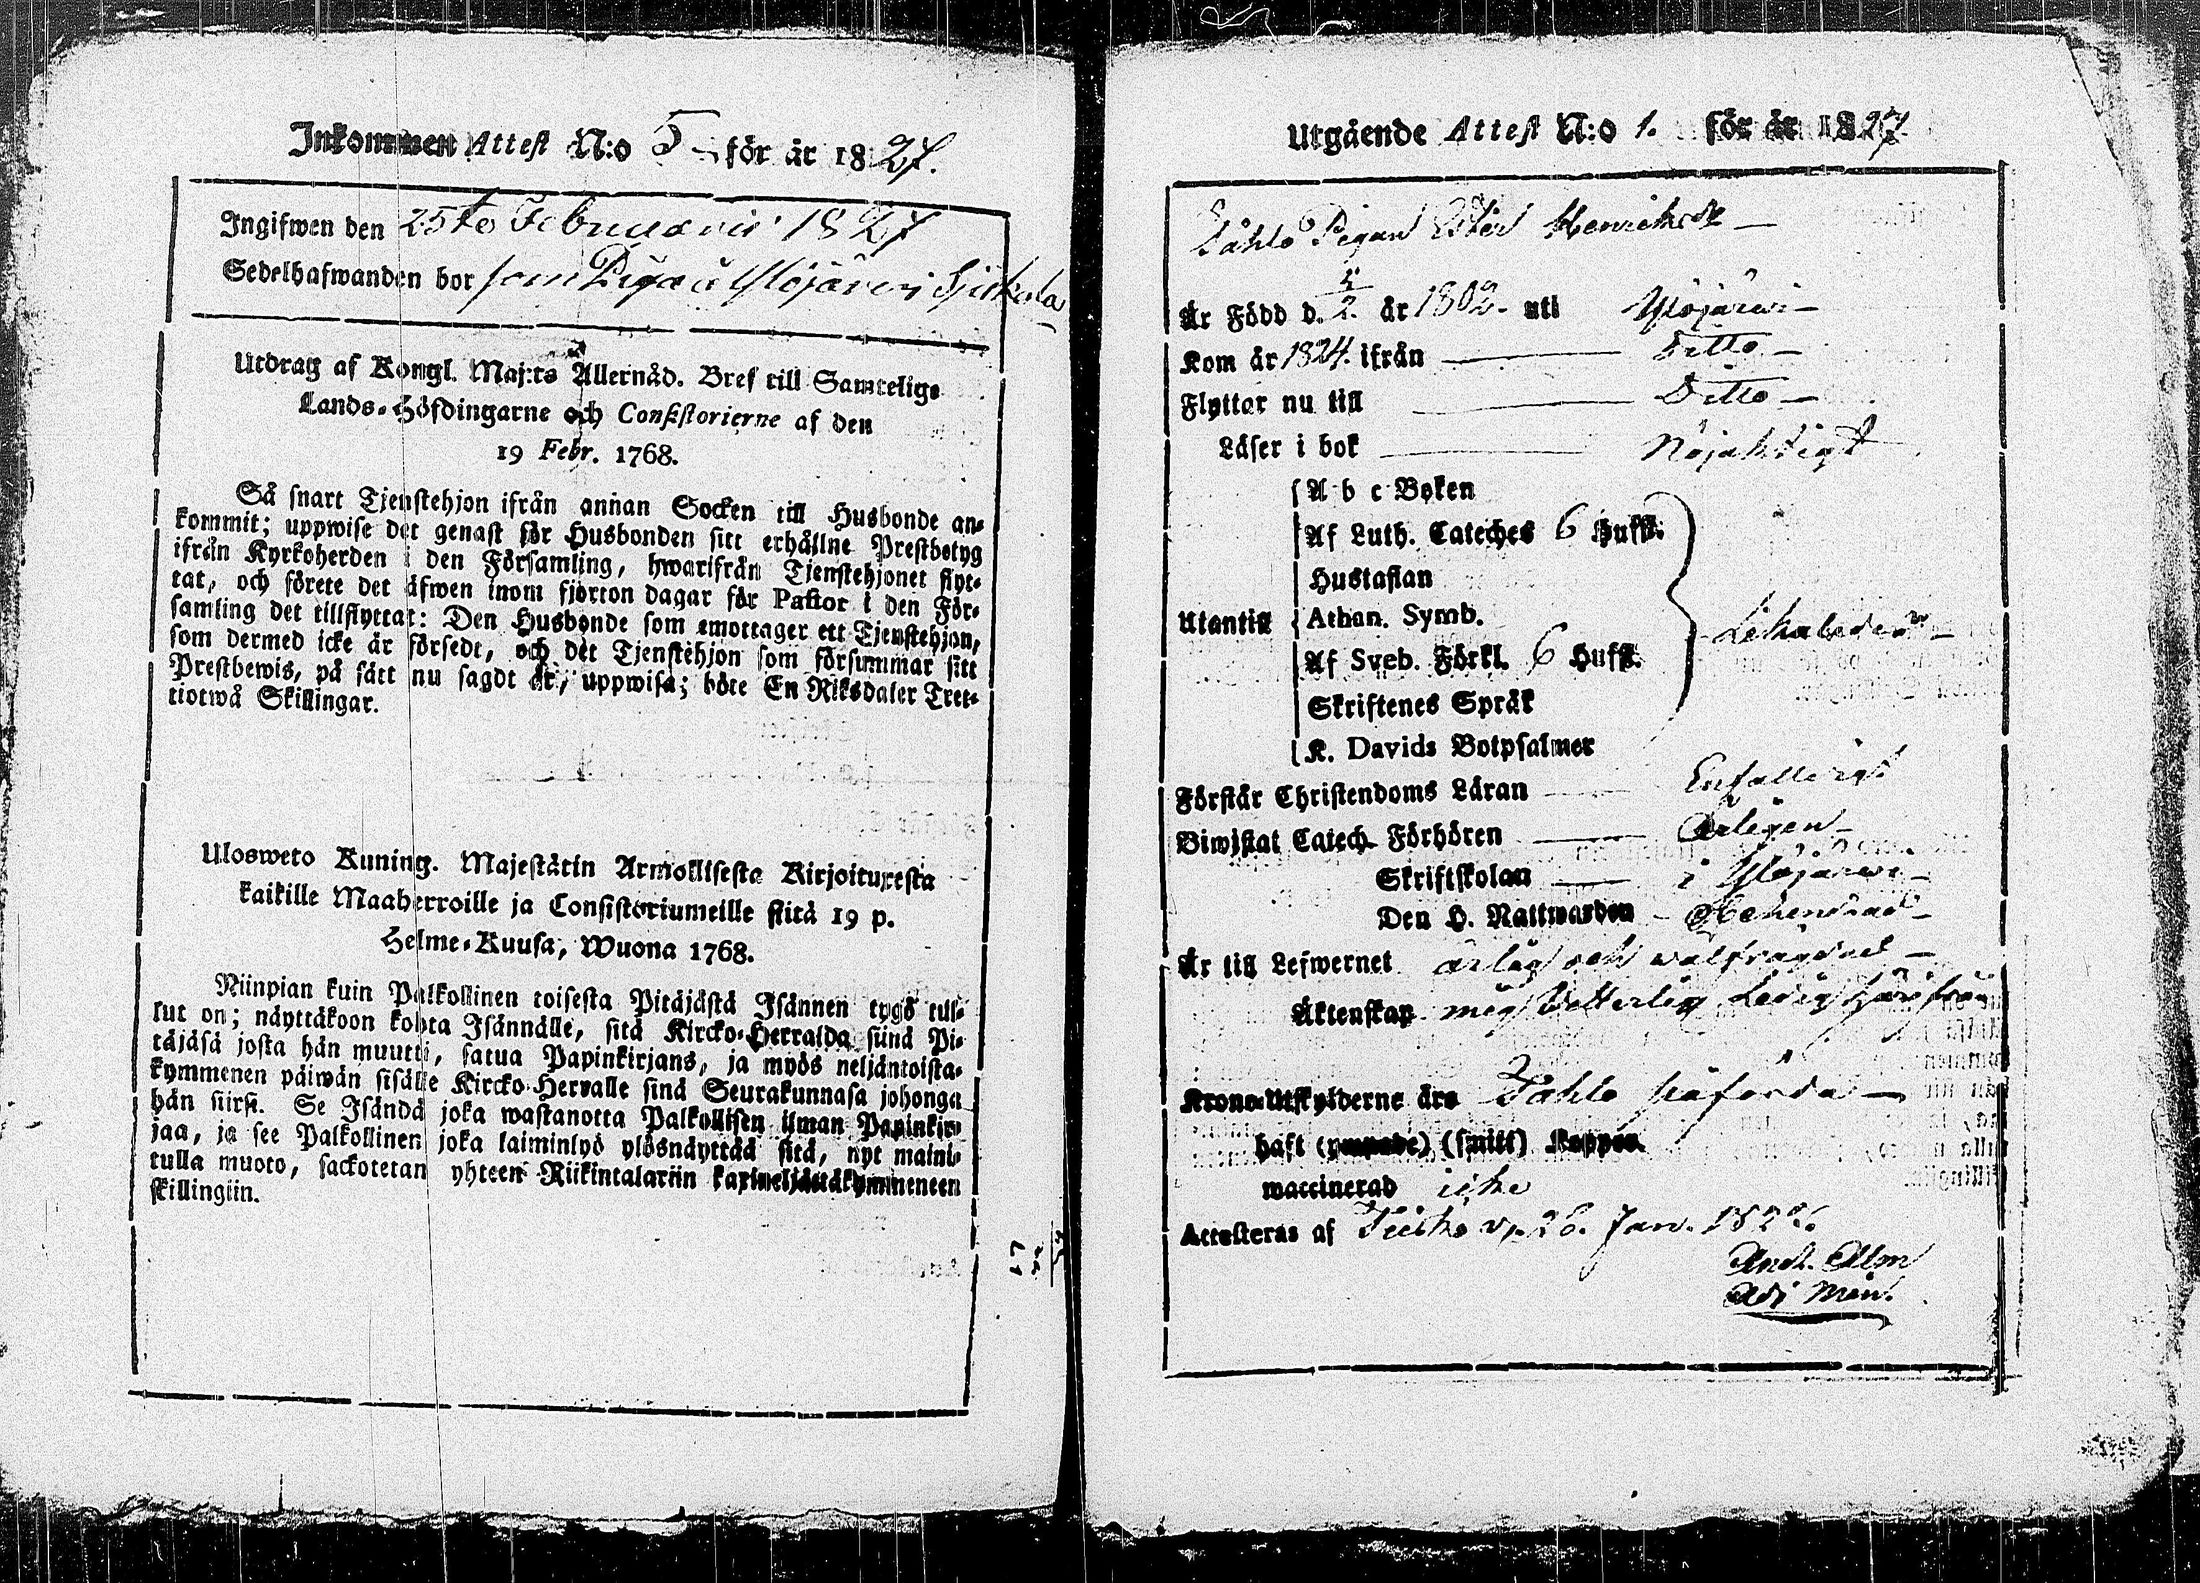 Inkommen Attest N:o 5 för år 1827.
Ingifwen den 25te Februarii 1827
Sedelhafwanden bor som Piga i Ylöjärwi
Utdrag af Kongl. Maj:ts Allernåd. Bref till Samtelige
Lands-Höfdingarne och Consistorierne af den
19 Febr. 1768.
Så snart Tjenstehjon ifrån annan Socken till Husbonde an-
kommit; uppwise det genast för Husbonden sitt erhållne Prestbetyg
ifrån Kyrkoherden i den Församling, hwarifrån Tjenstehjonet flyt-
tat, och förete det äfwen inom fjorton dagar för Pastor i den För-
samling det tillflyttat: Den Husbonde som emottager ett Tjenstehjon,
som dermed icke är försedt, och det Tjenstehjon som försummar sitt
Prestbewis, på sätt nu sagdt är, uppwisa; böte En Riksdaler Tret-
tiotwå Skillingar.
Ulosweto Kuning. Majestätin Armollisesta Kirjoituxesta
kaikille Maaherroille ja Consistoriumeille siitä 19 p.
Helme-Kuusa, Wuona 1768.
Niinpian kuin Palkollinen toisesta Pitäjästä Isännen tygö tul-
lut on; näyttäkoon kohta Isännälle, sitä Kircko-Herralda siinä Pi-
täjäsä josta hän muutti, saatua Papinkirjans, ja myös neljäntoista-
kymmenen päiwän sisälle Kircko-Herralle siinä Seurakunnasa johonga
hän siirsi. Se Isändä joka wastanotta Palkollisen ilman Papinkir-
jaa, ja see Palkollinen joka laiminlyö ylösnäyttää sitä, nyt maini-
tulla muoto, sackotetan yhteen Riikintalariin kaxineljättäkymmeneen
skillingiin.
Utgående Attest N:o 1. för år 1827
Pigan Henriksdr
Är Född d. 2. år 1802. uti Ylöjärwi
Kom år 1824. ifrån Ditto
Flyttar nu till Ditto
Läser i bok Nöjaktigt
A b c Boken
Af Luth. Cateches 6 Hufst.
Hustaflan
Utantill Athan. Symb.
Af Sveb. Förkl. 6 Hufst.
Skriftenes Språk
K. Davids Botpsalmer
Förstår Christendoms Läran Enfalligt
Biwistat Catech. Förhören Årligen
Skriftskolan i Ylöjärwi
Den H. Nattwarden
Är till Lefwernet ärlig och wälfrägdad
Äktenskap mig Wetterlig Ledig härifrån
Krono-Utskylderne äro
haft (ympade) (smitt) Koppor
waccinerad icke
Attesteras af 26. Jan.
And. Alm
Adj Min.